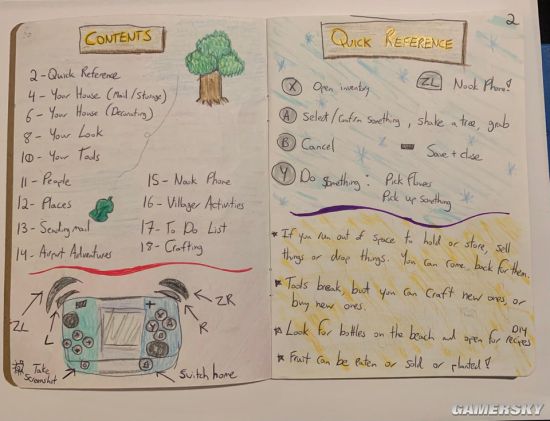 CONTENTS
2 - Quick Reference
4 - Your House (Mail/Storage)
6 - Your House (Decorating)
8 - Your Look
10 - Your Tools
11 - People
12 - Places
13 - Sending mail
14 - Airport Adventures
15 - Nook Phone
16 - Villager Activities
17 - To Do List
18 - Crafting
ZL
L
ZR
R
X
Y
A
B
Take
Screenshot
Switch home
2
QUICK REFERENCE
X Open inventory
ZL Nook Phone!
A Select/Confirm something, shake a tree, grab
B Cancel
Save + close
Y Do something: Pick Flowers
Pick up something
* If you run out of space to hold or store, sell
things or drop things. You can come back for them.
* Tools break, but you can craft new ones, or
buy new ones.
* Look for bottles on the beach and open for DIY recipes
* Fruit can be eaten or sold or planted!
GAMERSKY